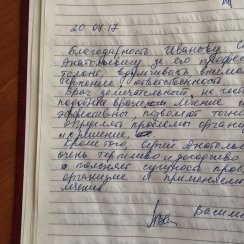 20.08.17
Благодарность Иванову
Анатольевичу за его профес
талант,
терпение ответственность
Врач замечательный, не част
подобные врачи лечение
эффективны, позволяет точно
определять проблемы органи
и решение
Кроме того, Сергей Анатоль
очень терпеливо и доходчиво
поясняет сущность про
организме и применяем
лечения.
Васили